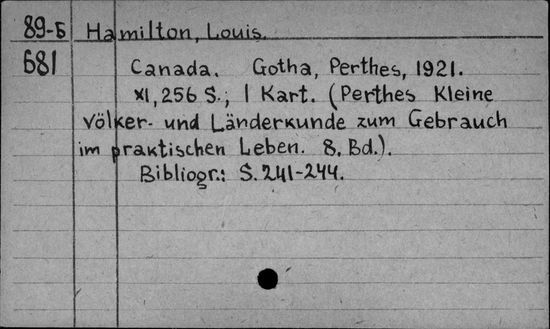 89-Б Hamilton, Louis.
681 Canada. Gotha, Perthes, 1921.
XI, 256 S.; 1 Kart. (Perthes Kleine
Völker- und Länderkunde zum Gebrauch
im praktischen Leben. 8. Bd.).
Bibliogr.: S. 241-244.